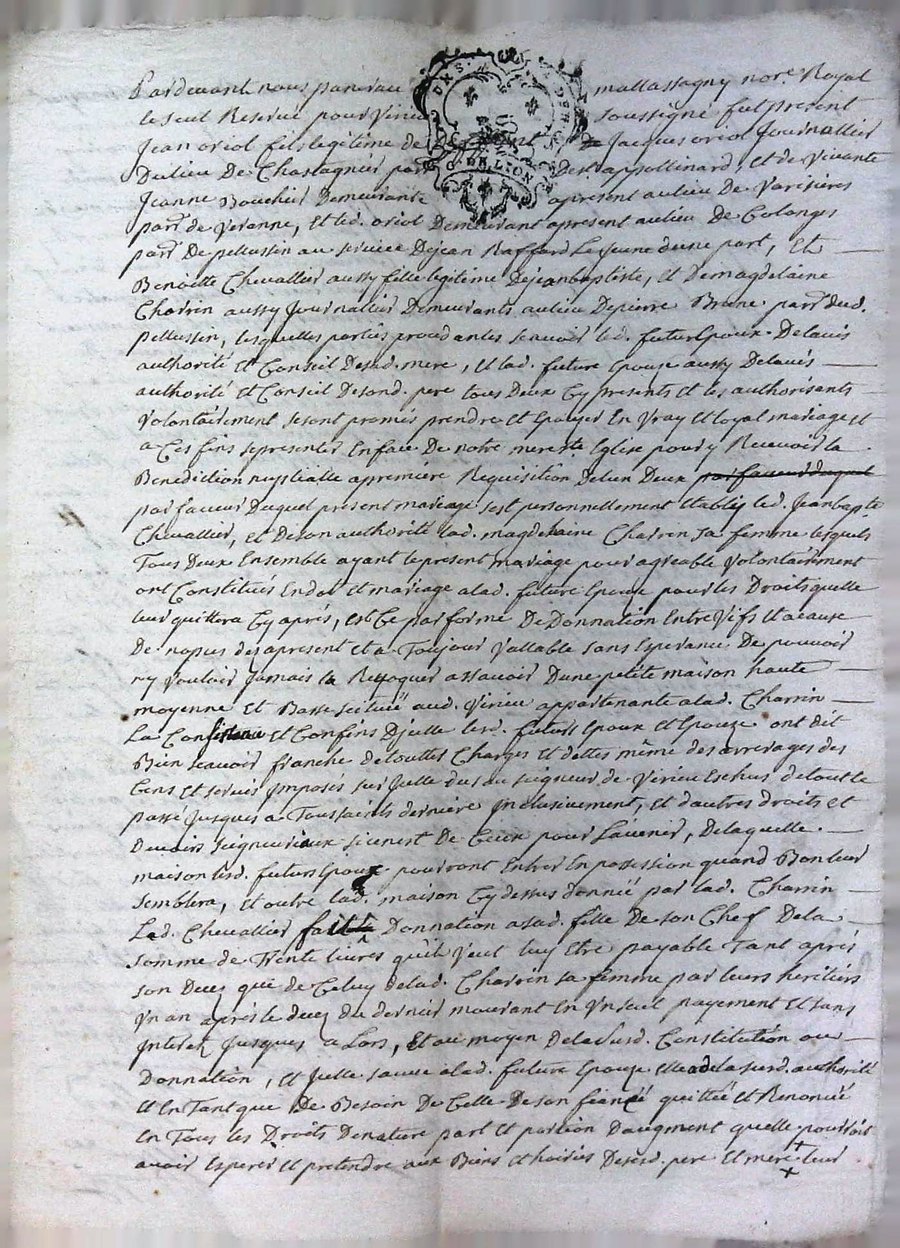 Pardevant nous mallassagny nore Royal
le seul Reservé pour Virieu soussigné fut present
Jean oriol fils legitime de Jacques oriol Journallier
Dulieu De Chastagnier par. dest appollinard, et de vivante
Jeanne Boucher Demeurante apresent aulieu De Varisieres
parr. De Veranne, Et led. oriol Demeurant apresent aulieu De Colonges
parr. De pellussin au service Dejean Raffard Lejeune dune part, Et
Benoitte Chevallier aussy fille legitime Dejeanbaptiste, et Demagdelaine
Charin aussy Journallier Demeurants aulieu Depierre Brune parr. dud.
pellussin, lesquelles parties proced antes scavoir led. futur Epoux Delavis
authorité et Conseil Desad. mere, et lad. future Epouse aussy Delavis
authorité et Conseil Desond. pere tous Deux Cy presents et les authorisants
Volontairement se sont promis prendre et Epouser En Vray et loyal mariage et
a Ces fins se presenter En face De notre mere ste Eglise pour y Recevoir la
Benediction nuptialle a premiere Requisition delun Deux par faveur duquel
par faveur Duquel present mariage sest personnellement Etably led. Jeanbapte
Chevallier, et De son authorité lad. magdelaine Charin sa femme lesquels
Tous Deux Ensemble ayant le present mariage pour agreable Volontairement
ont Constitués En dot et mariage alad. future Epouse pour les Droits quelle
leur quittera Cy aprés, est Ce par forme De Donnation Entre Vifs et a cause
De nopces des apresent et a Toujour Vallable sans Esperance De pouvoir
ny Vouloir Jamais la Revoquer assavoir Dune petite maison haute
moyenne et Basse scituée aud. Virieu appartenante alad. Charrin
La Consistance et Confins Dicelle lesd. futurs Epoux et Epouze ont dit
Bien scavoir franche de touttes Charges et dettes même des arrerages des
Cens et servis Imposés sur Icelle dus au seigneur de Virieu Eschus de tout le
passé Jusques a Toussaints derniere Inclusivement, et dautres droits et
Devoirs seigneuriaux si cenest De Ceux pour Lavenir, De laquelle
maison lesd. futurs Epoux pourront Entrer En possession quand Bon leur
semblera, et outre lad. maison Cy dessus donnée par lad. Charrin
Led. Chevallier fait Donnation asad. fille De son Chef De la
somme de Trente livres quil Veut luy Etre payable Tant aprés
son Deces que de Celuy delad. Charrin sa femme par leurs heritiers
Un an aprés le deces du dernier mourant En Un seul payement et sans
Interet Jusques a Lors, Et au moyen De la susd. Constitution ou
Donnation, et Icelle sauve alad. future Epouze Elle a de la susd. authorité
et En Tant que De Besoin De Celle De son fiancé quittée et Renoncée
En Tous les Droits De nature part et portion Daugment quelle pourroit
avoir Esperer et pretendre aux Biens et hoiries Desesd. pere et mere leur